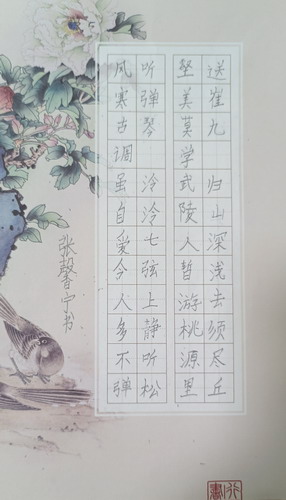 送崔九 归山深浅去须尽丘
壑美莫学武陵人暂游桃源里
听弹琴 泠泠七弦上静听松
风寒古调虽自爱今人多不弹
张馨宁书